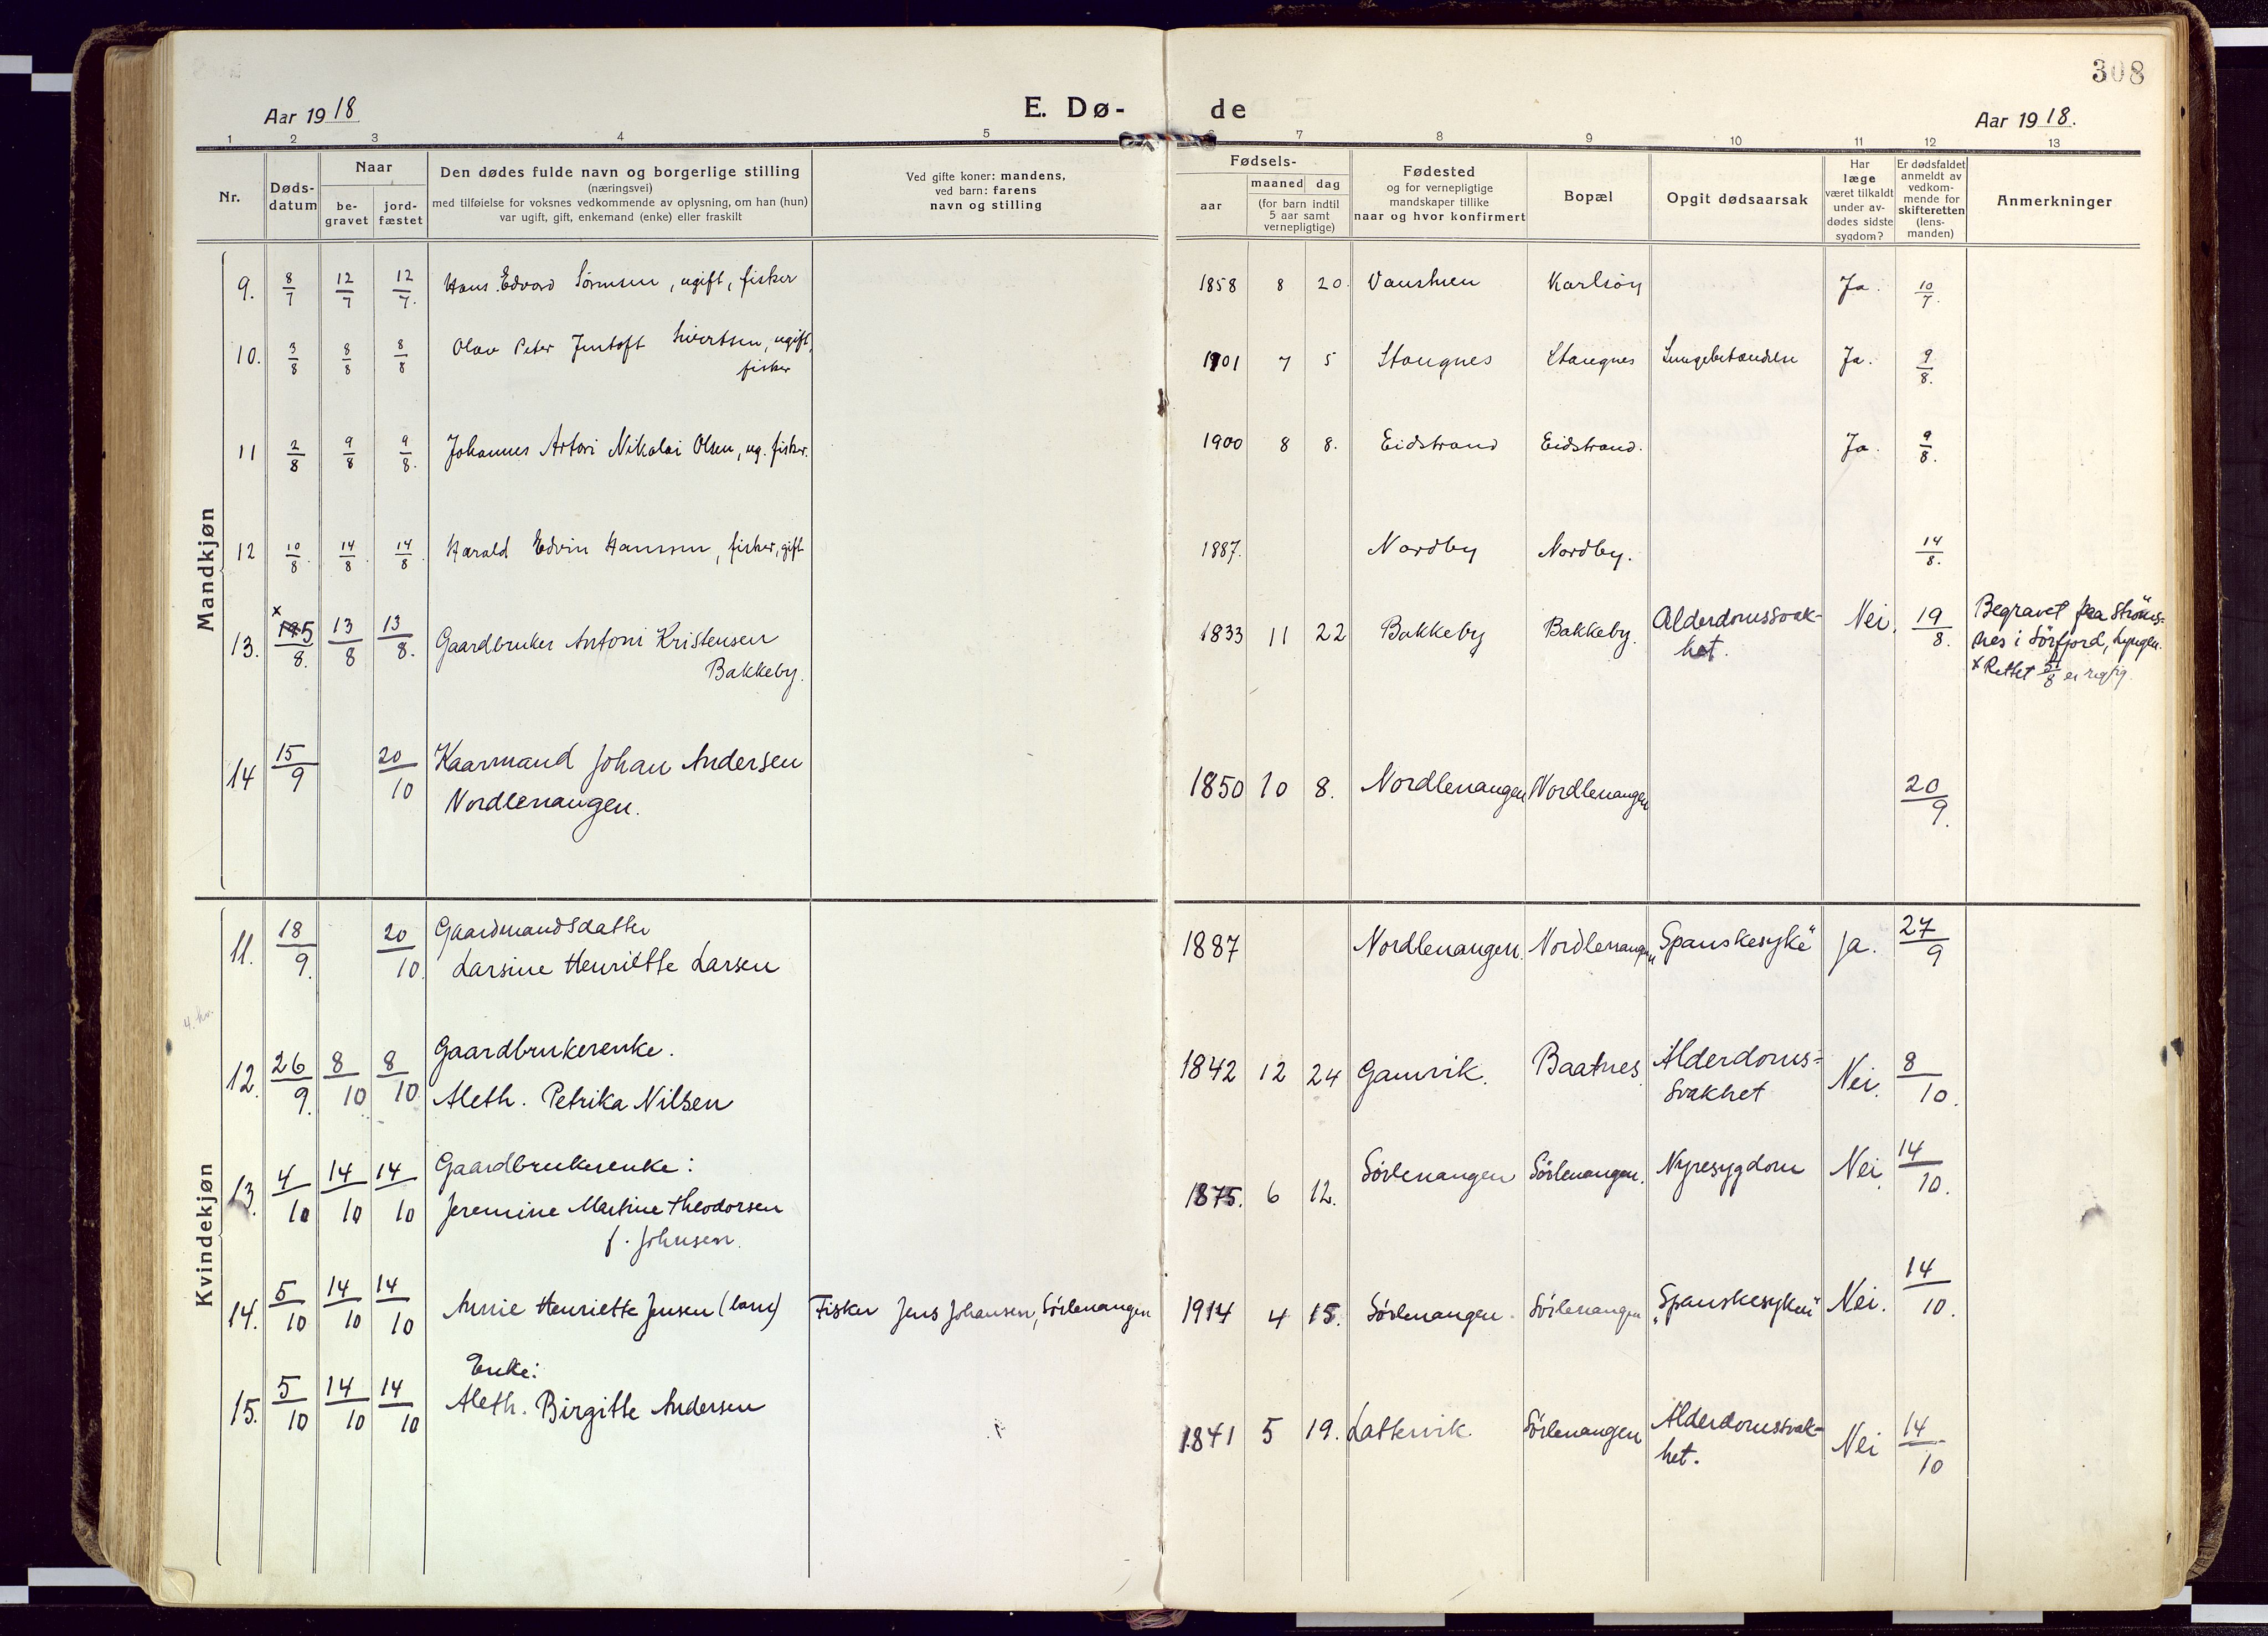 308
Aar 1918.
E. Dø-
de
Aar 1918.
1 2 3 4 5 6 7 8 9 10 11 12 13
Nr.
Døds-
datum
Naar
be-
gravet
jord-
fæstet
Den dødes fulde navn og borgerlige stilling
(næringsvei)
med tilføielse for voksnes vedkommende av oplysning, om han (hun)
var ugift, gift, enkemand (enke) eller fraskilt
Ved gifte koner: mandens,
ved barn: farens
navn og stilling
Fødsels-
aar
maaned dag
(for barn indtil
5 aar samt
vernepligtige)
Fødested
og for vernepligtige
mandskaper tillike
naar og hvor konfirmert
Bopæl
Opgit dødsaarsak
Har
læge
været tilkaldt
under av-
dødes sidste
sygdom?
Er dødsfaldet
anmeldt av
vedkom-
mende for
skifteretten
(lens-
manden)
Anmerkninger
Mandkjøn
9. 8/7 12/7 12/7. Hans Edvard Sørensen, ugift, fisker 1858 8 20. Karlsøy Ja. 10/7.
10. 3/8 8/8 8/8 Olav Peter Jentoft Sivertsen, ugift,
fisker
1901 7 5 Stangnes Stangnes Lungebetændelse Ja. 9/8.
11 2/8 9/8 9/8. Johannes Artori Nikolai Olsen, ug. fisker. 1900 8 8. Eidstrand Eidstrand. Ja. 9/8.
12 10/8. 14/8. 14/8. Harald Edvin Hanssen, fisker, gift 1887. Nordby Nordby. 14/8.
13. x 5/8. 13/8 13/8. Gaardbruker Antoni Kristensen
Bakkeby.
1833 11 22 Bakkeby Bakkeby. Alderdomssvak-
het.
Nei. 19/8.
Begravet paa Strøms-
nes i Sörfjord, Lyngen.
x Rettet 5/8 er rigtig.
14 15/9 20/10 Kaarmand Johan Andersen
Nordlenangen.
1850 10 8. Nordlenangen Nordlenangen 20/9.
Kvindekjøn
11. 18/9. 20/10. Gaardmandsdatter
Larsine Henriette Larsen
1887 Nordlenangen. Nordlenangen "Spanskesyke" Ja. 27/9
4. kv.
12. 26/9. 8/10 8/10. Gaardbrukerenke.
Aleth. Petrika Nilsen
1842 12 24 Gamvik. Baatnes Alderdoms-
svakhet
Nei. 8/10.
13. 4/10 14/10 14/10 Gaardbrukerenke:
Jeremine Martine Theodorsen
f. Johnsen.
1875. 6 12. Sörlenangen Sörlenangen. Nyresygdom Nei. 14/10.
14. 5/10 14/10 14/10 Annie Henriette Jensen (barn) Fisker Jens Johansen, Sörlenangen 1914 4 15. Sörlenangen. Sörlenangen "Spanskesyken" Nei. 14/10.
15. 5/10 14/10 14/10 Enke:
Aleth. Birgitte Andersen
1841 5 19. Lattervik. Sörlenangen Alderdomssvak-
het.
Nei 14/10